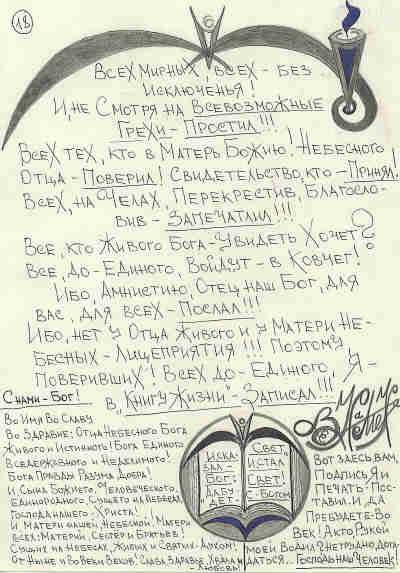 12
Всех Мирных, всех - без
Исключенья!
И, не Смотря на Всевозможные
Грехи - Простил!!!
Всех тех, кто в Матерь Божию, Небесного
Отца - Поверил! Свидетельство, кто - Принял!
Всех, на Челах, Перекрестив, Благосло-
вив - Запечатлил!!!
Все, кто Живого Бога - Увидеть Хочет?
Все, до - Единого, Войдут - в Ковчег!
Ибо, Амнистию, Отец наш Бог, для
вас, для всех - Послал!!!
Ибо, нет у Отца Живого и у Матери Не-
бесных - Лицеприятия!!! Поэтому
Поверивших! Всех до - Единого, Я -
в "Книгу Жизни" - Записал!!!
С нами - Бог!
Во Имя Во Славу
Во Здравие: Отца Небесного Бога
Живого и Истинного! Бога Единого
Вседержавного и Неделимого!
Бога Правды Разума Добра!
И Сына Божьего Человеческого,
Единородного, Сущего на Небесах,
Господа нашего - Христа!
И Матери нашей, Небесной! Матери
всех: Материй, Сестёр и Братьев!
Сущих на Небесах, Живых и Святых - Духом!
От Ныне и Во Веки Веков! Слава Здравье, Хвала -
Любовь!
И сказа-
зал -
Бог:
Да бу-
дет -
Свет,
И стал
Свет!
С - Богом
Вот Здесь, Вам,
Подпись, Я и
Печать! Пос-
тавил. И, да
Пребудете - Во
Век! А кто Рукой
моей Водил? Нетрудно, Дога-
даться.. Господь наш Человек!